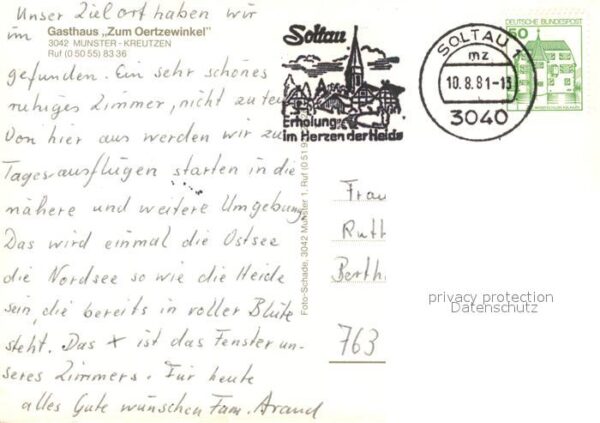 Unser Zielort haben wir
im Gasthaus „Zum Oertzewinkel"
3042 MUNSTER - KREUTZEN
Ruf (0 50 55) 83 36
gefunden. Ein sehr schönes
ruhiges Zimmer, nicht zu teu
Von hier aus werden wir zu
Tagesausflügen starten in die
nähere und weitere Umgebung
Das wird einmal die Ostsee
die Nordsee so wie die Heide
sein, die bereits in voller Blüte
steht. Das x ist das Fenster un-
seres Zimmers. Für heute
alles Gute wünschen Fam. Arand
Foto-Schade, 3042 Munster 1, Ruf (0 51 9
Soltau
Erholung
im Herzen der Heide
SOLTAU 1
mz
10.8.81-13
3040
DEUTSCHE BUNDESPOST
50
Frau
Ruth
Berth
763
privacy protection
Datenschutz